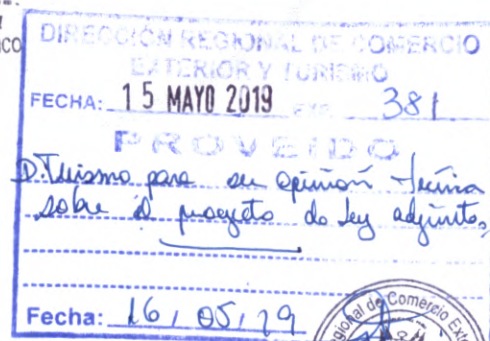 DIRECCIÓN REGIONAL DE COMERCIO
EXTERIOR Y TURISMO
FECHA: 15 MAYO 2019 381
PROVEIDO
D. Turismo para su opinión técnica
sobre el proyecto de Ley adjunto.
Fecha: 16/05/19
Regional de Comercio